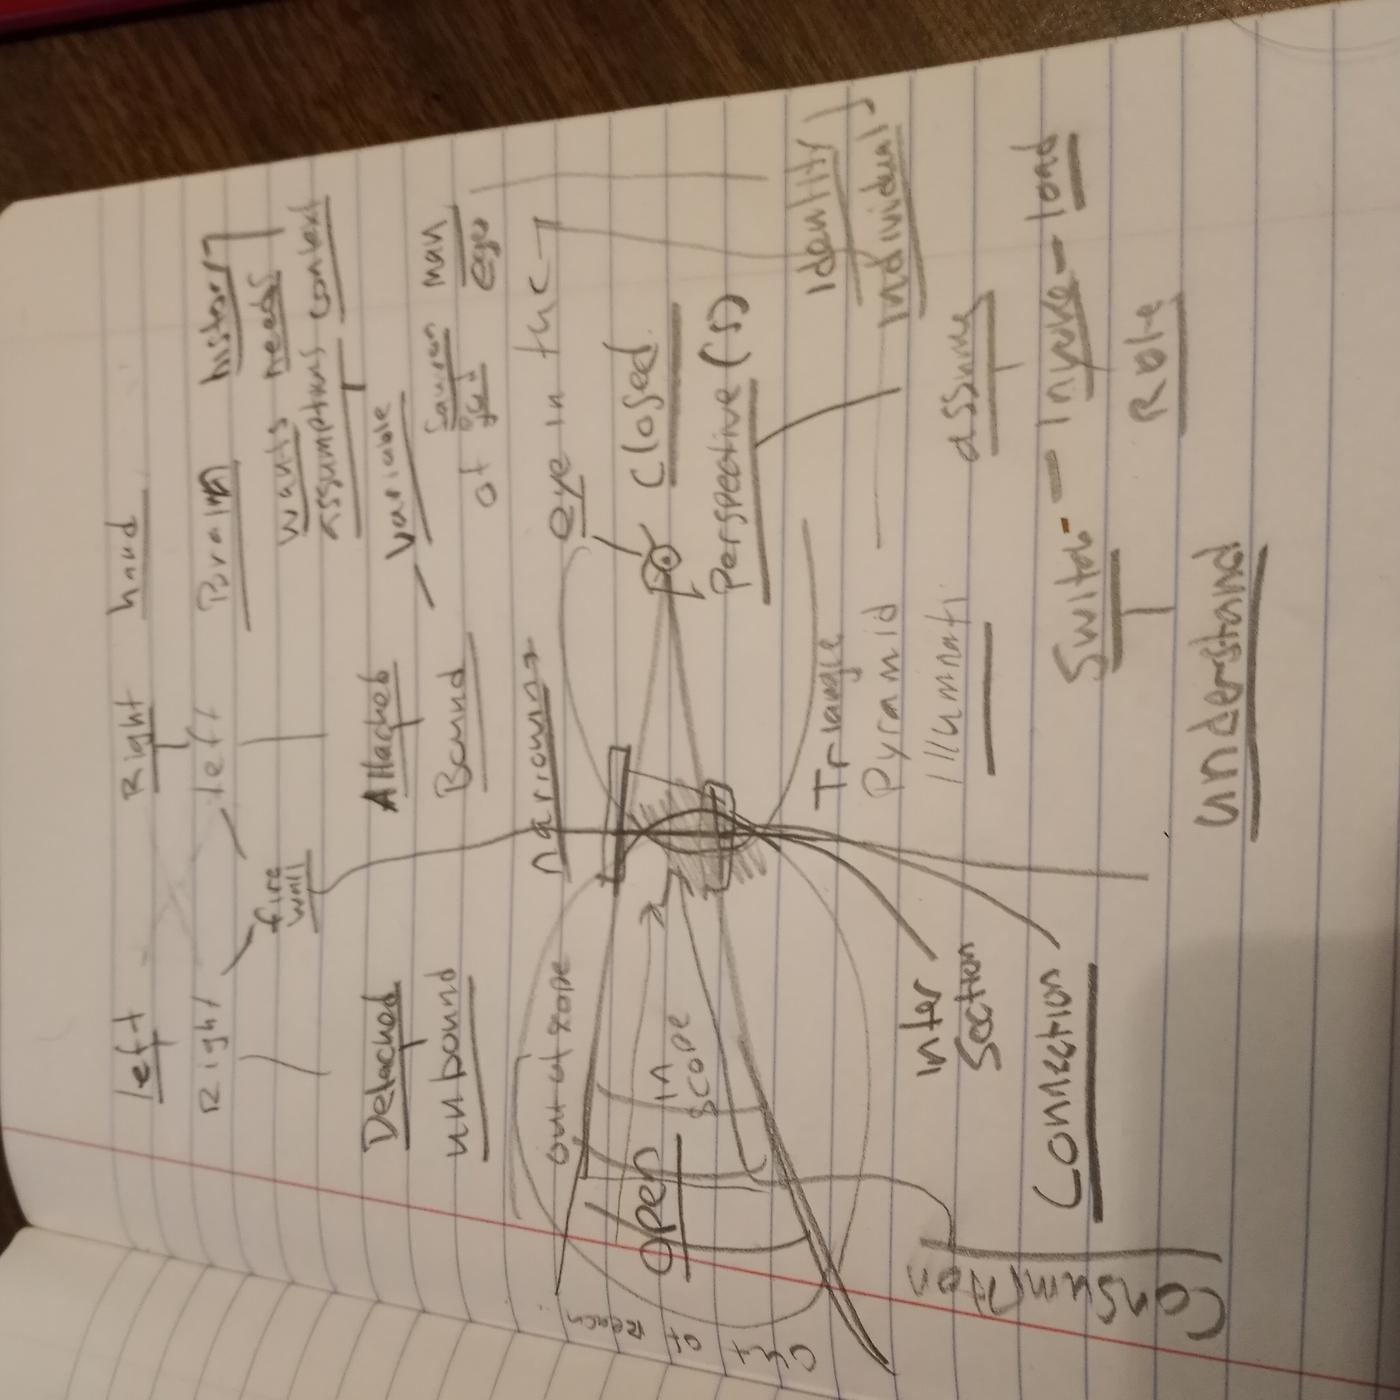 left Right hand
Right left Brain history
fire wall
wants needs
assumptions context
Detached Attached variable
unbound Bound
of man
eye in the
narrowing
out of scope
in scope
open
closed
Perspective(s)
out of Reach
Identity
Individual
Triangle
Pyramid
Illumnati
assume
Inter
Section
Connection
Switch - Invoke - load
Role
understand